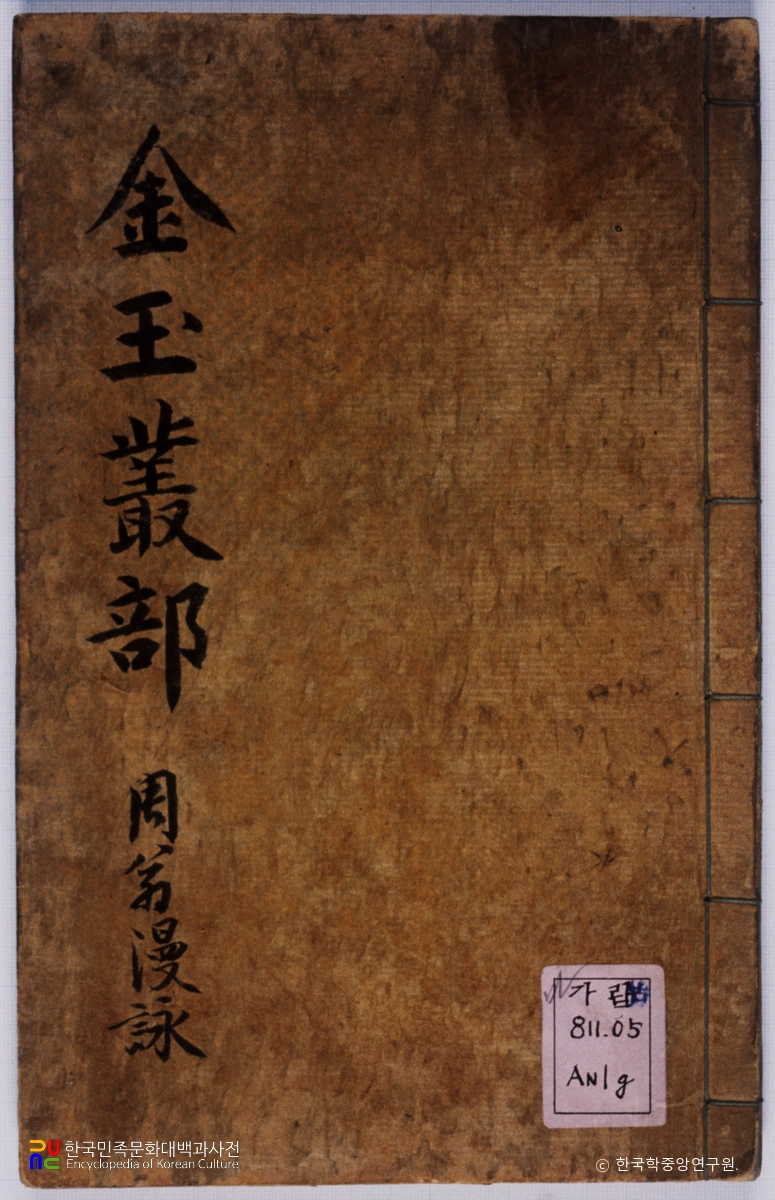 金玉叢部
周翁漫詠
가람古
811.05
AN1g
한국민족문화대백과사전
Encyclopedia of Korean Culture
© 한국학중앙연구원.